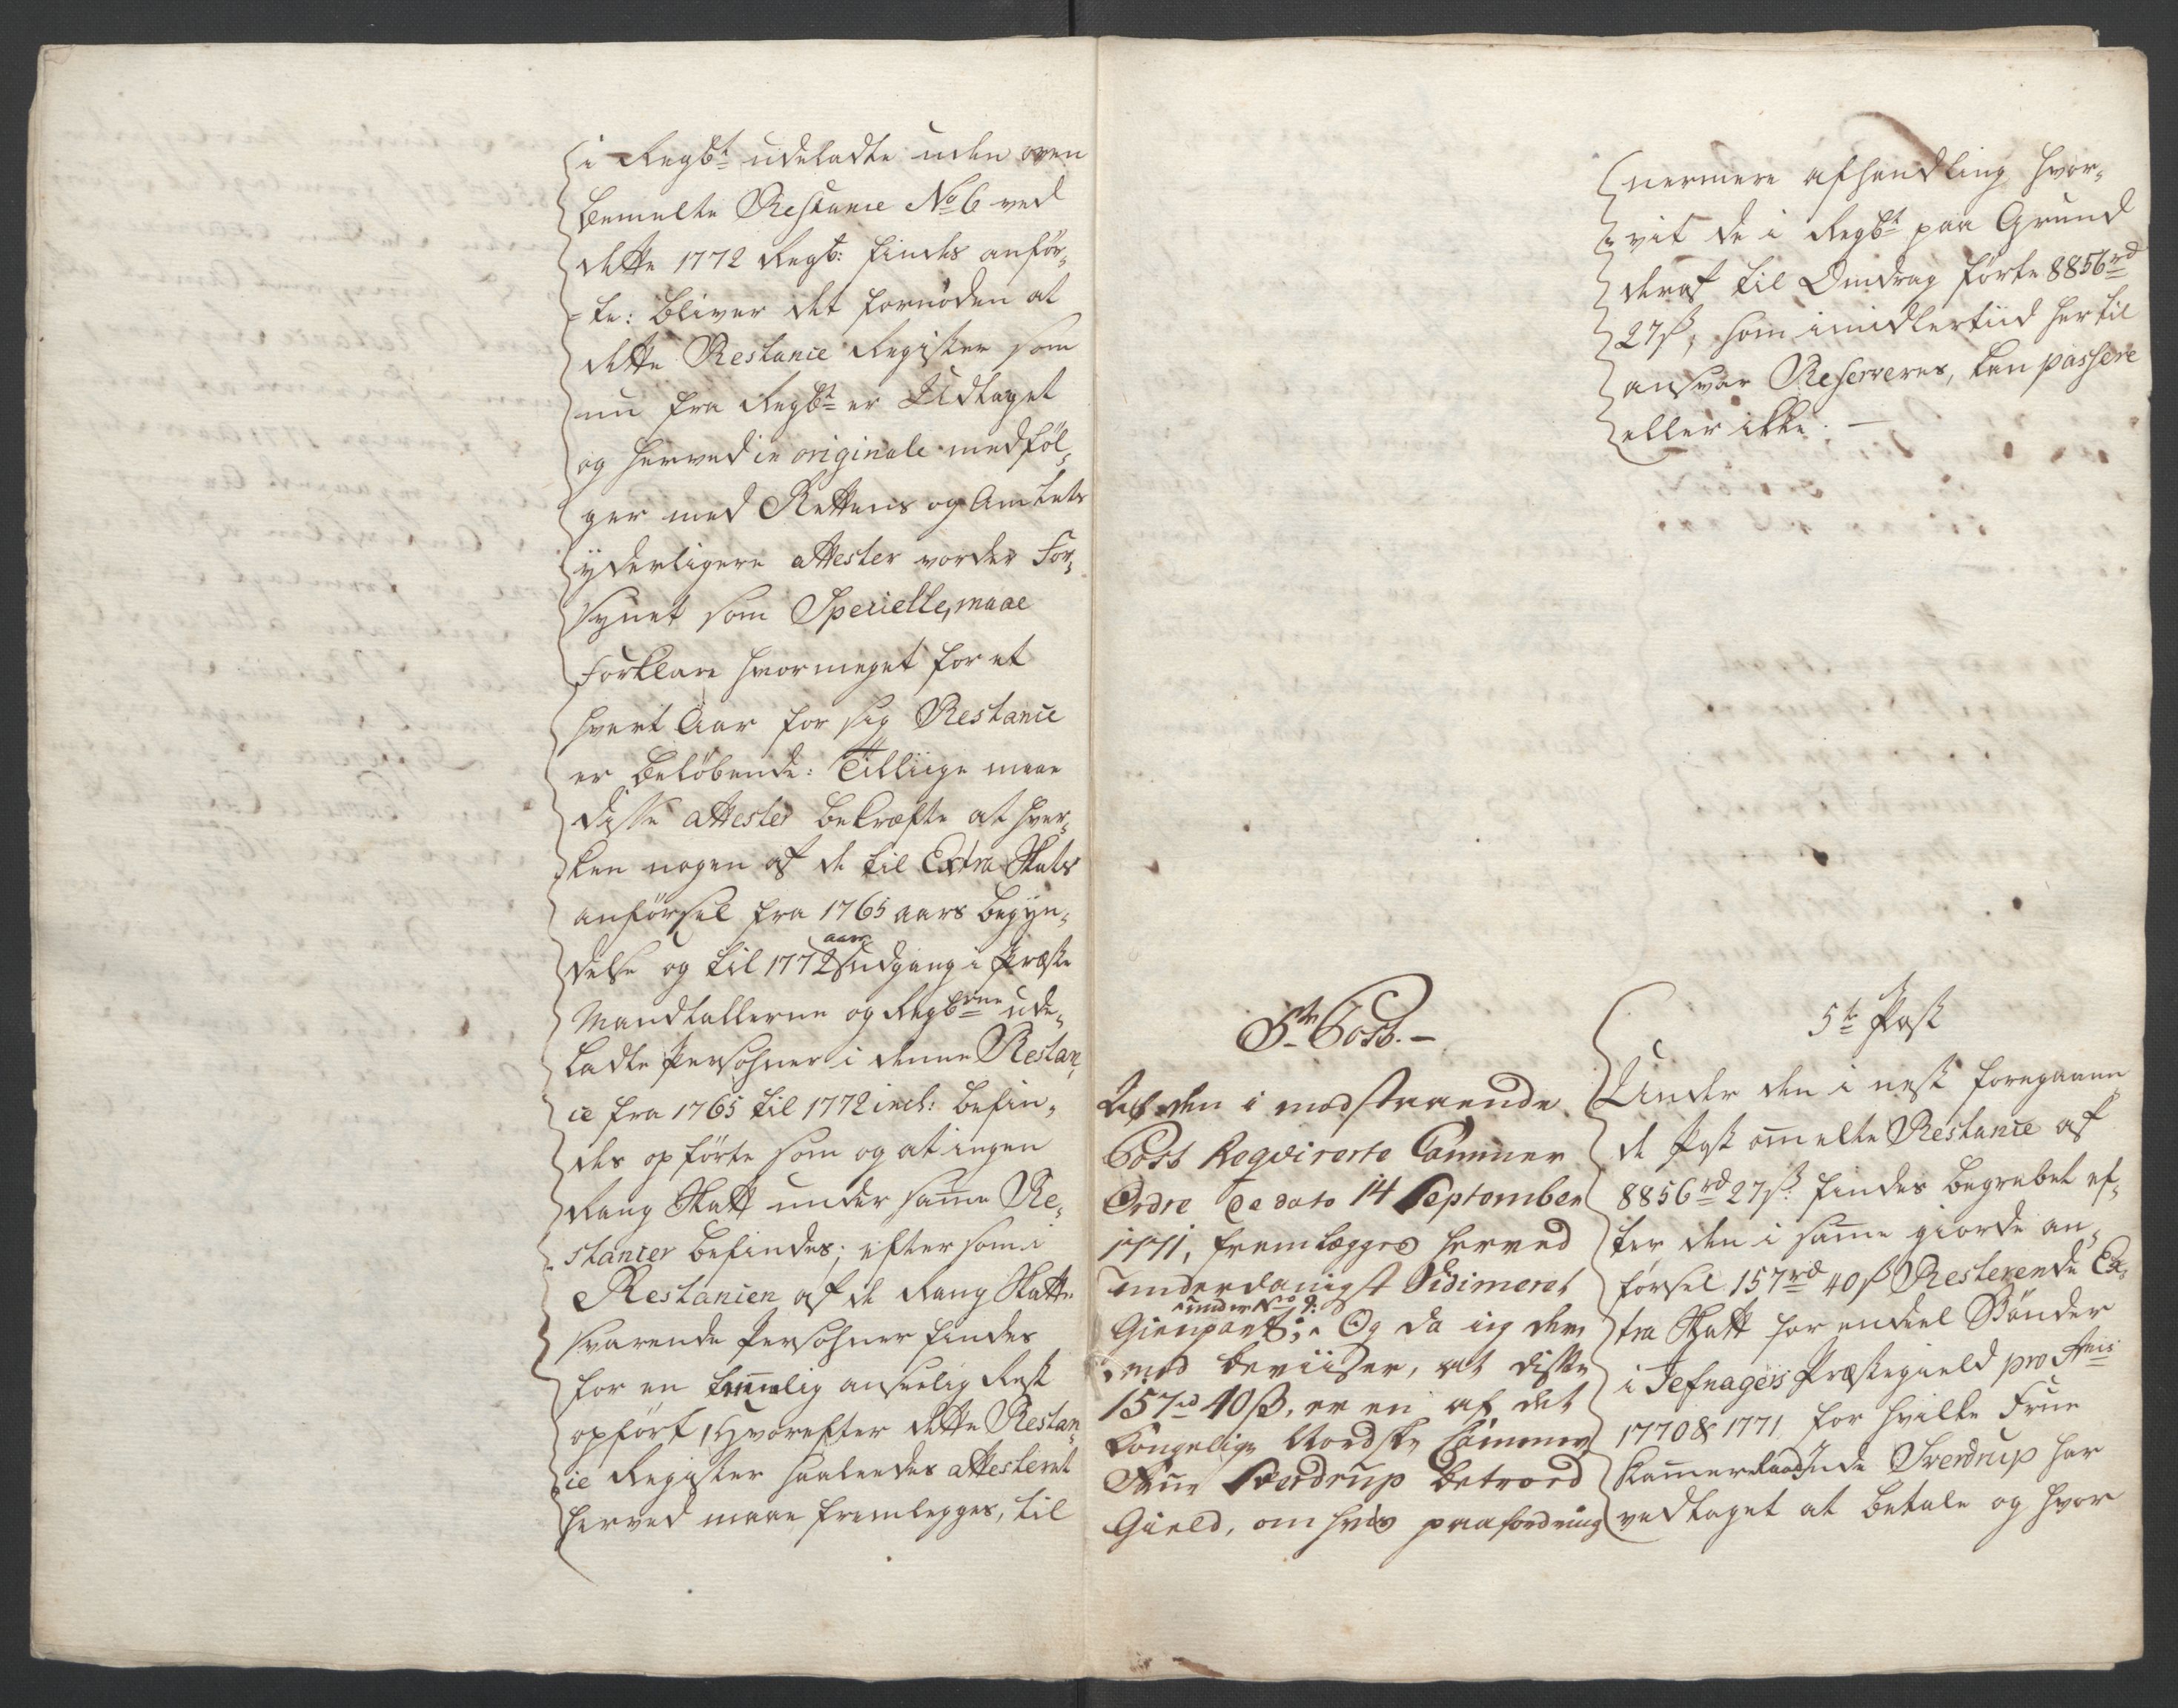 i Regbt udeladte uden oven
bemelte Restance No 6 ved
dette 1772 Regb: findes anför-
te: bliver det fornöden at
dette Restance Register som
nu fra Regbt er Udtaget
og herved in originale medföl-
ger med Rettens og Amtets
yderligere attester vorder For-
synet som Specielle, maae
Forklare hvormeget for et
hvert Aar for sig Restance
er beløbende: Tilliige maae
disse attester bekræfte at hver-
ken nogen af de til Extra Skats
anförsel fra 1765 aars begyn-
delse og til 1772 aars udgang i Præste
Mandtallerne og Regbrne ude-
ladte Persohner i denne Restan-
ce fra 1765 til 1772 incl: befin-
des opförte som og at ingen
Rang Skatt under samme Re-
stancer befindes; eftersom i
Restancen af de Rang Skatt
svarende Persohner findes
for en temmelig anseelig Rest
opfört, Hvorefter dette Restan-
ce Register saaledes attesteret
herved maae fremlegges, til
nermere afhandling hvor-
vit de i Regbt paa Grund
deraf til Omdrag förte 8856rd
27ß, som imidlertiid hertil
ansvar Reserveres, kan passere
eller ikke. —
5te Post. —
Den i modstaaende
Post Reqvirerte Cammer
Ordre de dato 14 September
1771, fremlægges herved
underdanigst Vidimeret
under No 9:
Gienpart; Og da ieg der
med beviiser, at disse
157rd 40ß. er en af det
Kongelige Nordske Cammer
Frue Sverdrup betroed
Gield, om hvis paafordring
5te Post
Under den i nest foregaaen-
de Post ommelte Restance af
8856rd 27ß: findes begrebet ef-
ter den i samme giorde an-
försel 157rd 40ß Resterende Ex-
tra Skatt for endeel Bönder
i Jefnagers Præstegield pro Anis
1770 & 1771 for hvilke Frue
Kammerraadinde Sverdrup har
vedtaget at betale og hvor